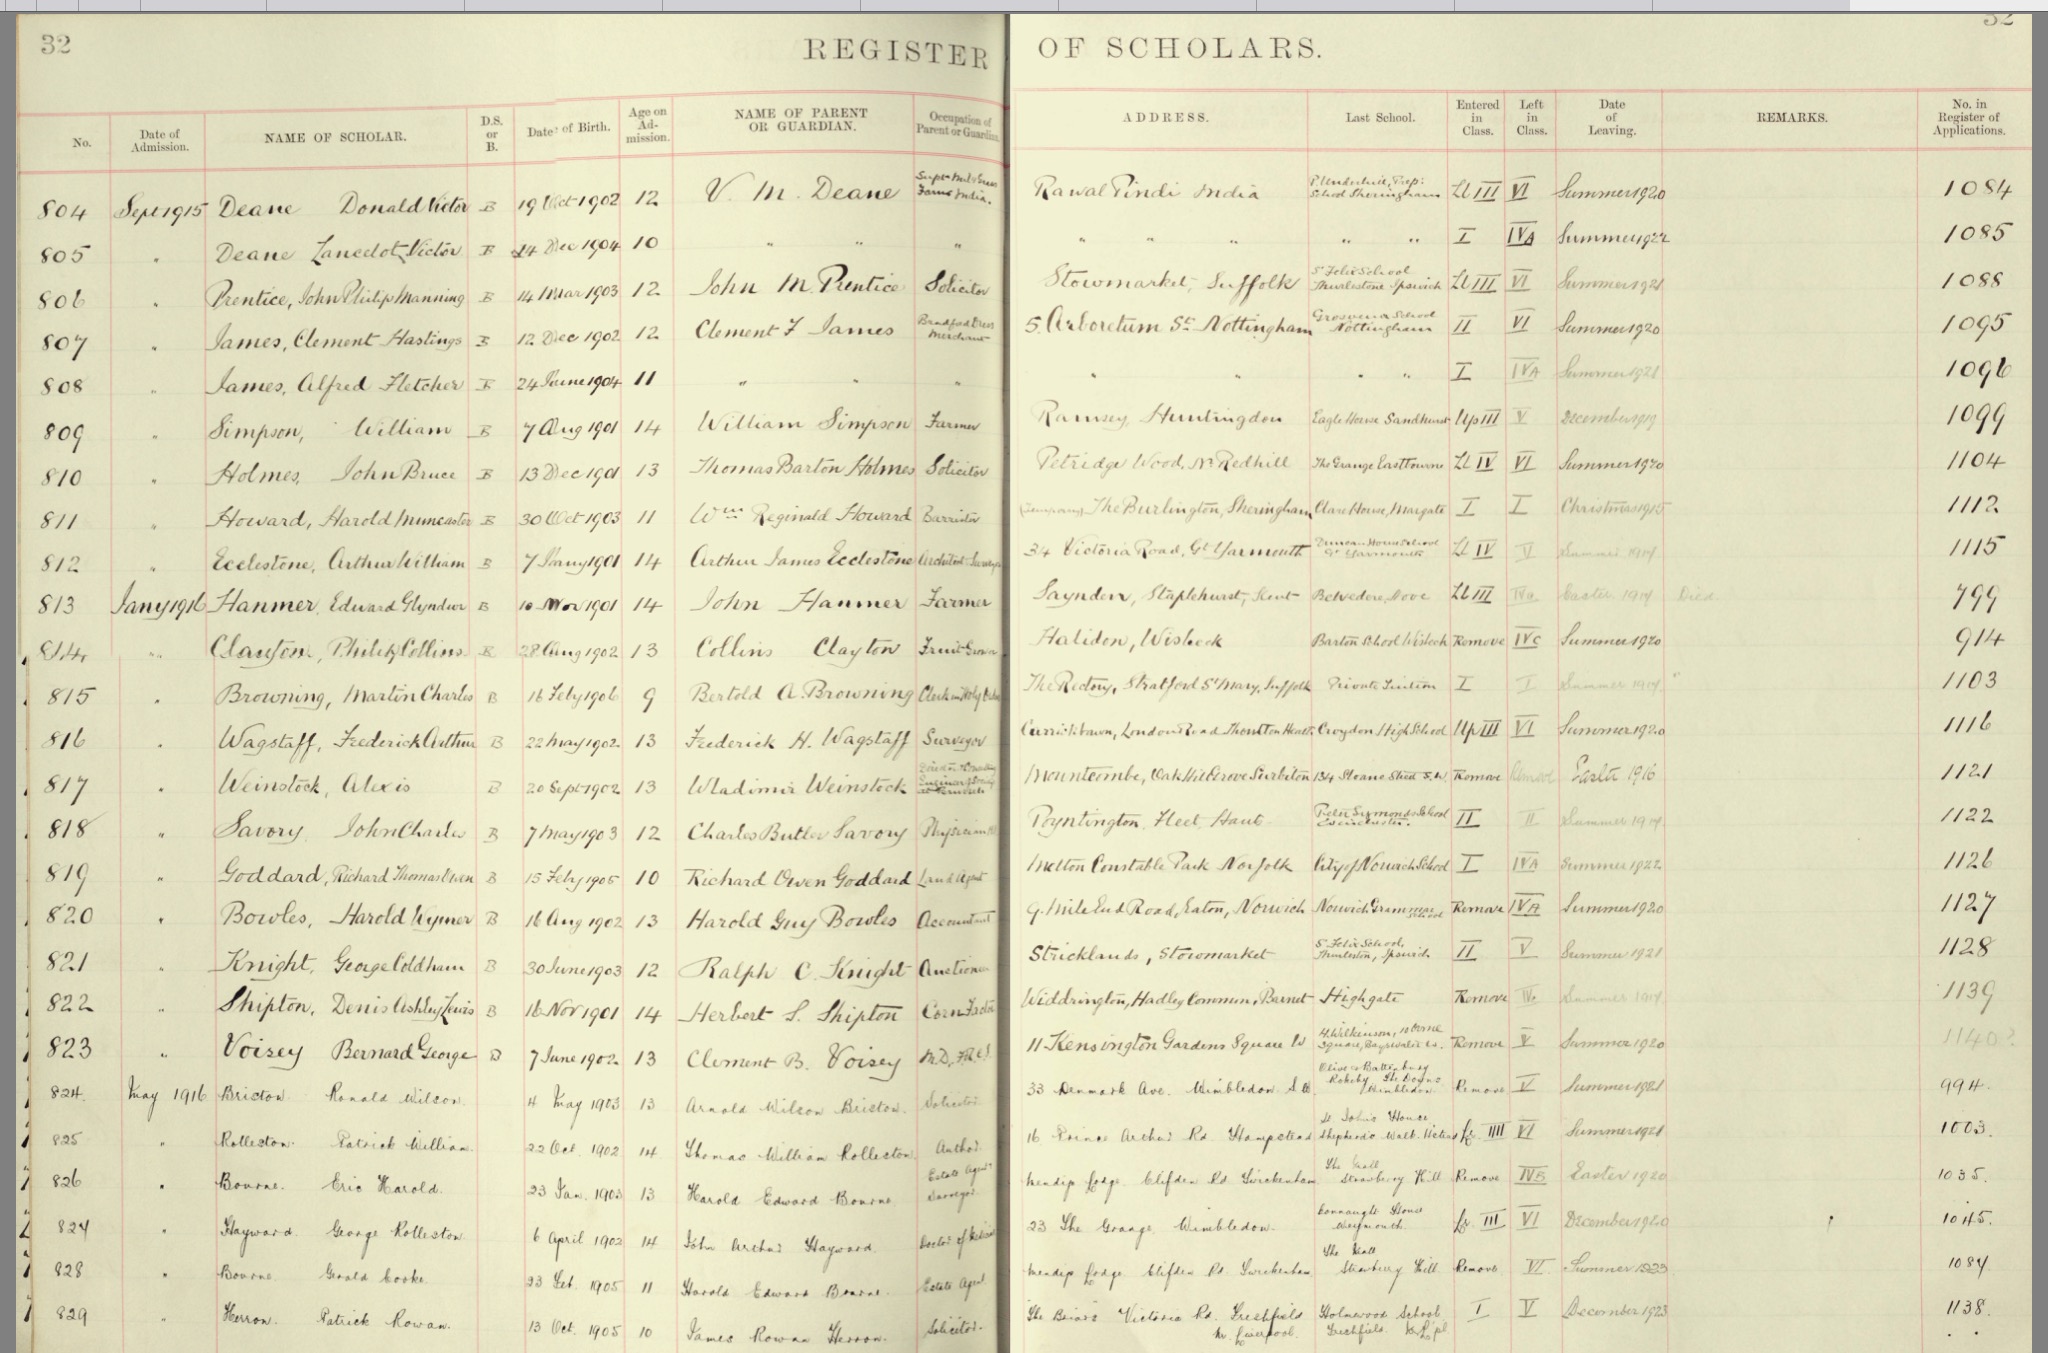 32
32
REGISTER OF SCHOLARS.
No. Date of Admission. NAME OF SCHOLAR. D.S. or B. Date of Birth. Age on Ad-mission. NAME OF PARENT OR GUARDIAN. Occupation of Parent or Guardian. ADDRESS. Last School. Entered in Class. Left in Class. Date of Leaving. REMARKS. No. in Register of Applications.
804 Sept 1915 Deane Donald Victor B 19 Oct 1902 12 V. M. Deane India. Rawal Pindi India School Sheringham Lr III VI Summer 1920 1084
805 " Deane Lancelot Victor B 14 Dec 1904 10 " " " " " " " " I IVA Summer 1922 1085
806 " Prentice, John Philip Manning B 14 Mar 1903 12 John M Prentice Solicitor Stowmarket, Suffolk St Felix School Thurlestone Ipswich Lr III VI Summer 1921 1088
807 " James, Clement Hastings B 12 Dec 1902 12 Clement F James Bradford Dress Merchant 5 Arboretum St Nottingham Grosvenor School Nottingham II VI Summer 1920 1095
808 " James, Alfred Fletcher B 24 June 1904 11 " " " " " " " I IVA Summer 1921 1096
809 " Simpson, William B 7 Aug 1901 14 William Simpson Farmer Ramsey, Huntingdon Eagle House Sandhurst Up III V December 1919 1099
810 " Holmes, John Bruce B 13 Dec 1901 13 Thomas Barton Holmes Solicitor Petridge Wood, Nr Redhill The Grange Lr IV VI Summer 1920 1104
811 " Howard, Harold Muncaster B 30 Oct 1903 11 Wm Reginald Howard Barrister (Temporary) The Burlington, Sheringham Clare House, Margate I I Christmas 1915 1112
812 " Ecclestone, Arthur William B 7 Jany 1901 14 Arthur James Ecclestone Architect Surveyor 34 Victoria Road, Gt Yarmouth Duncan House School Gt Yarmouth Lr IV V Summer 1917 1115
813 Jany 1916 Hanmer, Edward Glyndwr B 10 Nov 1901 14 John Hanmer Farmer Saynden, Staplehurst, Kent Belvedere, Hove Lr III IVa Easter 1917 Died 799
814 " Clayton, Philip Collins B 28 Aug 1902 13 Collins Clayton Fruit Grower Halidon, Wisbech Barton School Wisbech Remove IVC Summer 1920 914
815 " Browning, Martin Charles B 16 Feby 1906 9 Bertold A. Browning Clerk in Holy Orders The Rectory, Stratford St Mary, Suffolk Private Tuition I I Summer 1917 1103
816 " Wagstaff, Frederick Arthur B 22 May 1902 13 Frederick H. Wagstaff Surveyor Carrickbawn, London Road Thornton Heath Croydon High School Up III VI Summer 1920 1116
817 " Weinstock, Alexis B 20 Sept 1902 13 Wladimir Weinstock Mountcombe, Oak Hill Grove Surbiton 134 Sloane Street S.W. Remove Remove Easter 1916 1121
818 " Savory, John Charles B 7 May 1903 12 Charles Butler Savory Physician Poyntington, Fleet, Hants Peter Symonds School Winchester. II II Summer 1917 1122
819 " Goddard, Richard Thomas Owen B 15 Feby 1905 10 Richard Owen Goddard Land Agent Melton Constable Park Norfolk City of Norwich School I IVA Summer 1922 1126
820 " Bowles, Harold Wymer B 16 Aug 1902 13 Harold Guy Bowles Accountant 9. Mile End Road, Eaton, Norwich Norwich Grammar School Remove IVA Summer 1920 1127
821 " Knight, George Coldham B 30 June 1903 12 Ralph C. Knight Auctioneer Stricklands, Stowmarket St Felix School, Thurleston, Ipswich II V Summer 1921 1128
822 " Shipton, Denis Ashley Lewis B 16 Nov 1901 14 Herbert S. Shipton Corn Factor Widdrington, Hadley Common, Barnet Highgate Remove Summer 1917 1139
823 " Voisey Bernard George B 7 June 1902 13 Clement B. Voisey M.D., F.R.C.S. 11 Kensington Gardens Square W H. Wilkinson, 10 Orme Square, Bayswater W. Remove V Summer 1920 1140?
824. May 1916 Briston. Ronald Wilson. 4 May 1903 13 Arnold Wilson Briston. Solicitor. 33 Denmark Ave. Wimbledon S.W. Olive & Battenbury Rokeby The Downs Wimbledon Remove V Summer 1921 994.
825 " Rolleston. Patrick William. 22 Oct. 1902 14. Thomas William Rolleston Author 16 Prince Arthur Rd. Hampstead St John's House Shepherd's Walk. Lr III VI Summer 1921 1003.
826 " Bourne. Eric Harold. 23 Jan. 1903 13 Harold Edward Bourne Estate Agent Surveyor Mendip Lodge Clifden Rd. Twickenham The Mall Strawberry Hill Remove IVB Easter 1920 1035.
827 " Hayward. George Rolleston 6 April 1902 14 John Arthur Hayward. Doctor of Medicine 23 The Grange. Wimbledon. Connaught House Weymouth. Lr. III VI December 1920 1045.
828 " Bourne. Gerald Cooke. 23 Feb. 1905 11 Harold Edward Bourne. Estate Agent Mendip Lodge Clifden Rd. Twickenham The Mall Strawberry Hill Remove VI Summer 1923 1087.
829 " Herron. Patrick Rowan. 13 Oct. 1905 10 James Rowan Herron. Solicitor. The Briars Victoria Rd. Freshfield Nr. Liverpool. Holmwood School Freshfield. Nr L'pl I V December 1923 1138.